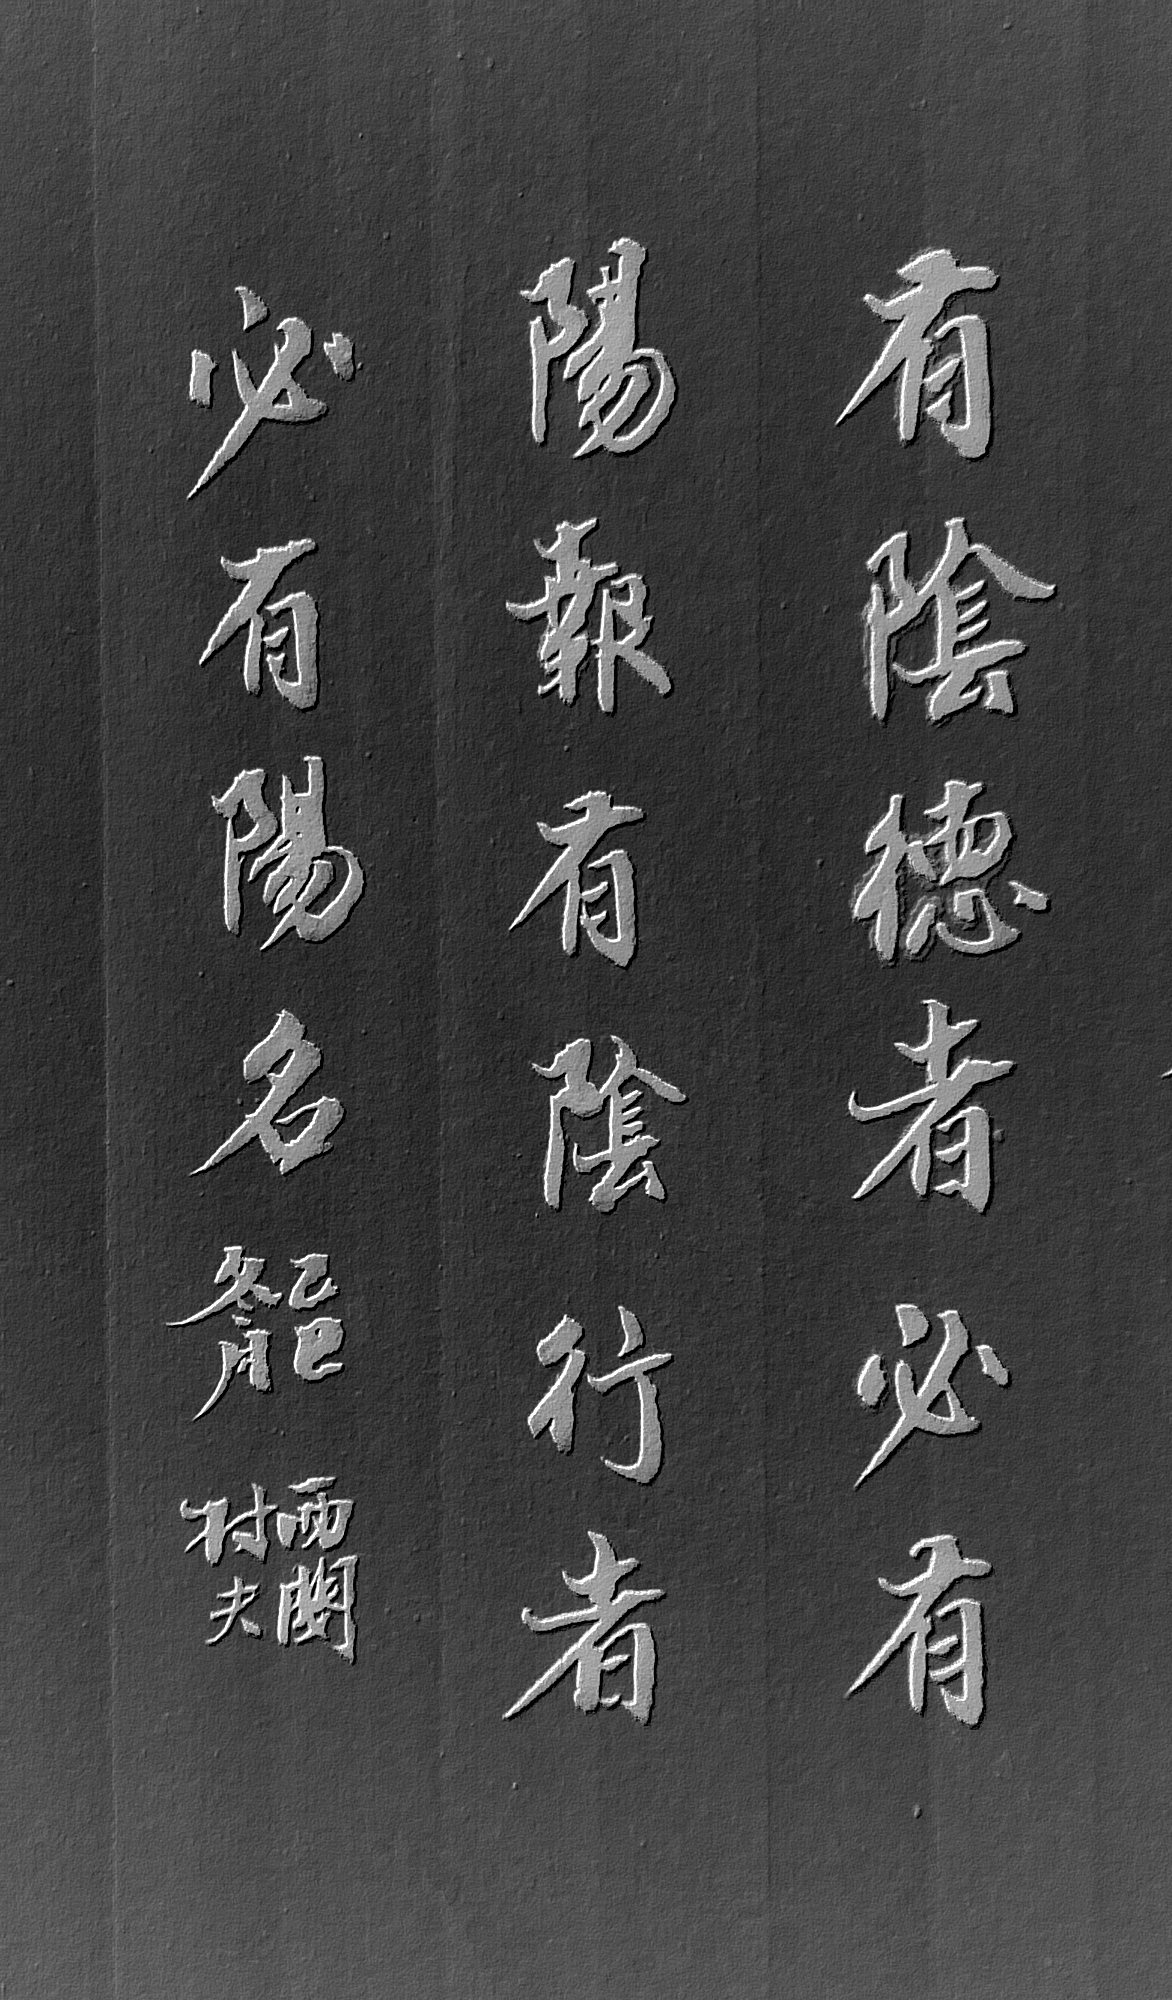 有陰德者必有
陽報有陰行者
必有陽名
己巳
冬月
西閣
村夫